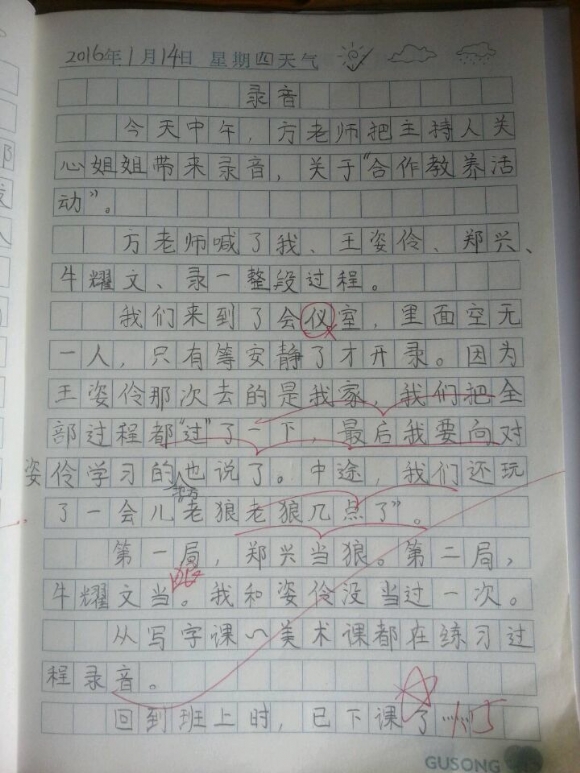 2016年1月14日 星期四天气
录音
今天中午，方老师把主持人关
心姐姐带来录音，关于“合作教养活
动”。
方老师喊了我、王姿伶、郑兴、
牛耀文、录一整段过程。
我们来到了会仪室，里面空无
一人，只有等安静了才开录。因为
王姿伶那次去的是我家，我们把全
部过程都“过”了一下，最后我要向对
姿伶学习的也说了。中途，我们还玩
了一会儿老狼老狼几点了”。
第一局，郑兴当狼。第二局，
牛耀文当。我和姿伶没当过一次。
从写字课～美术课都在练习过
程录音。
回到班上时，已下课了……
GUSONG